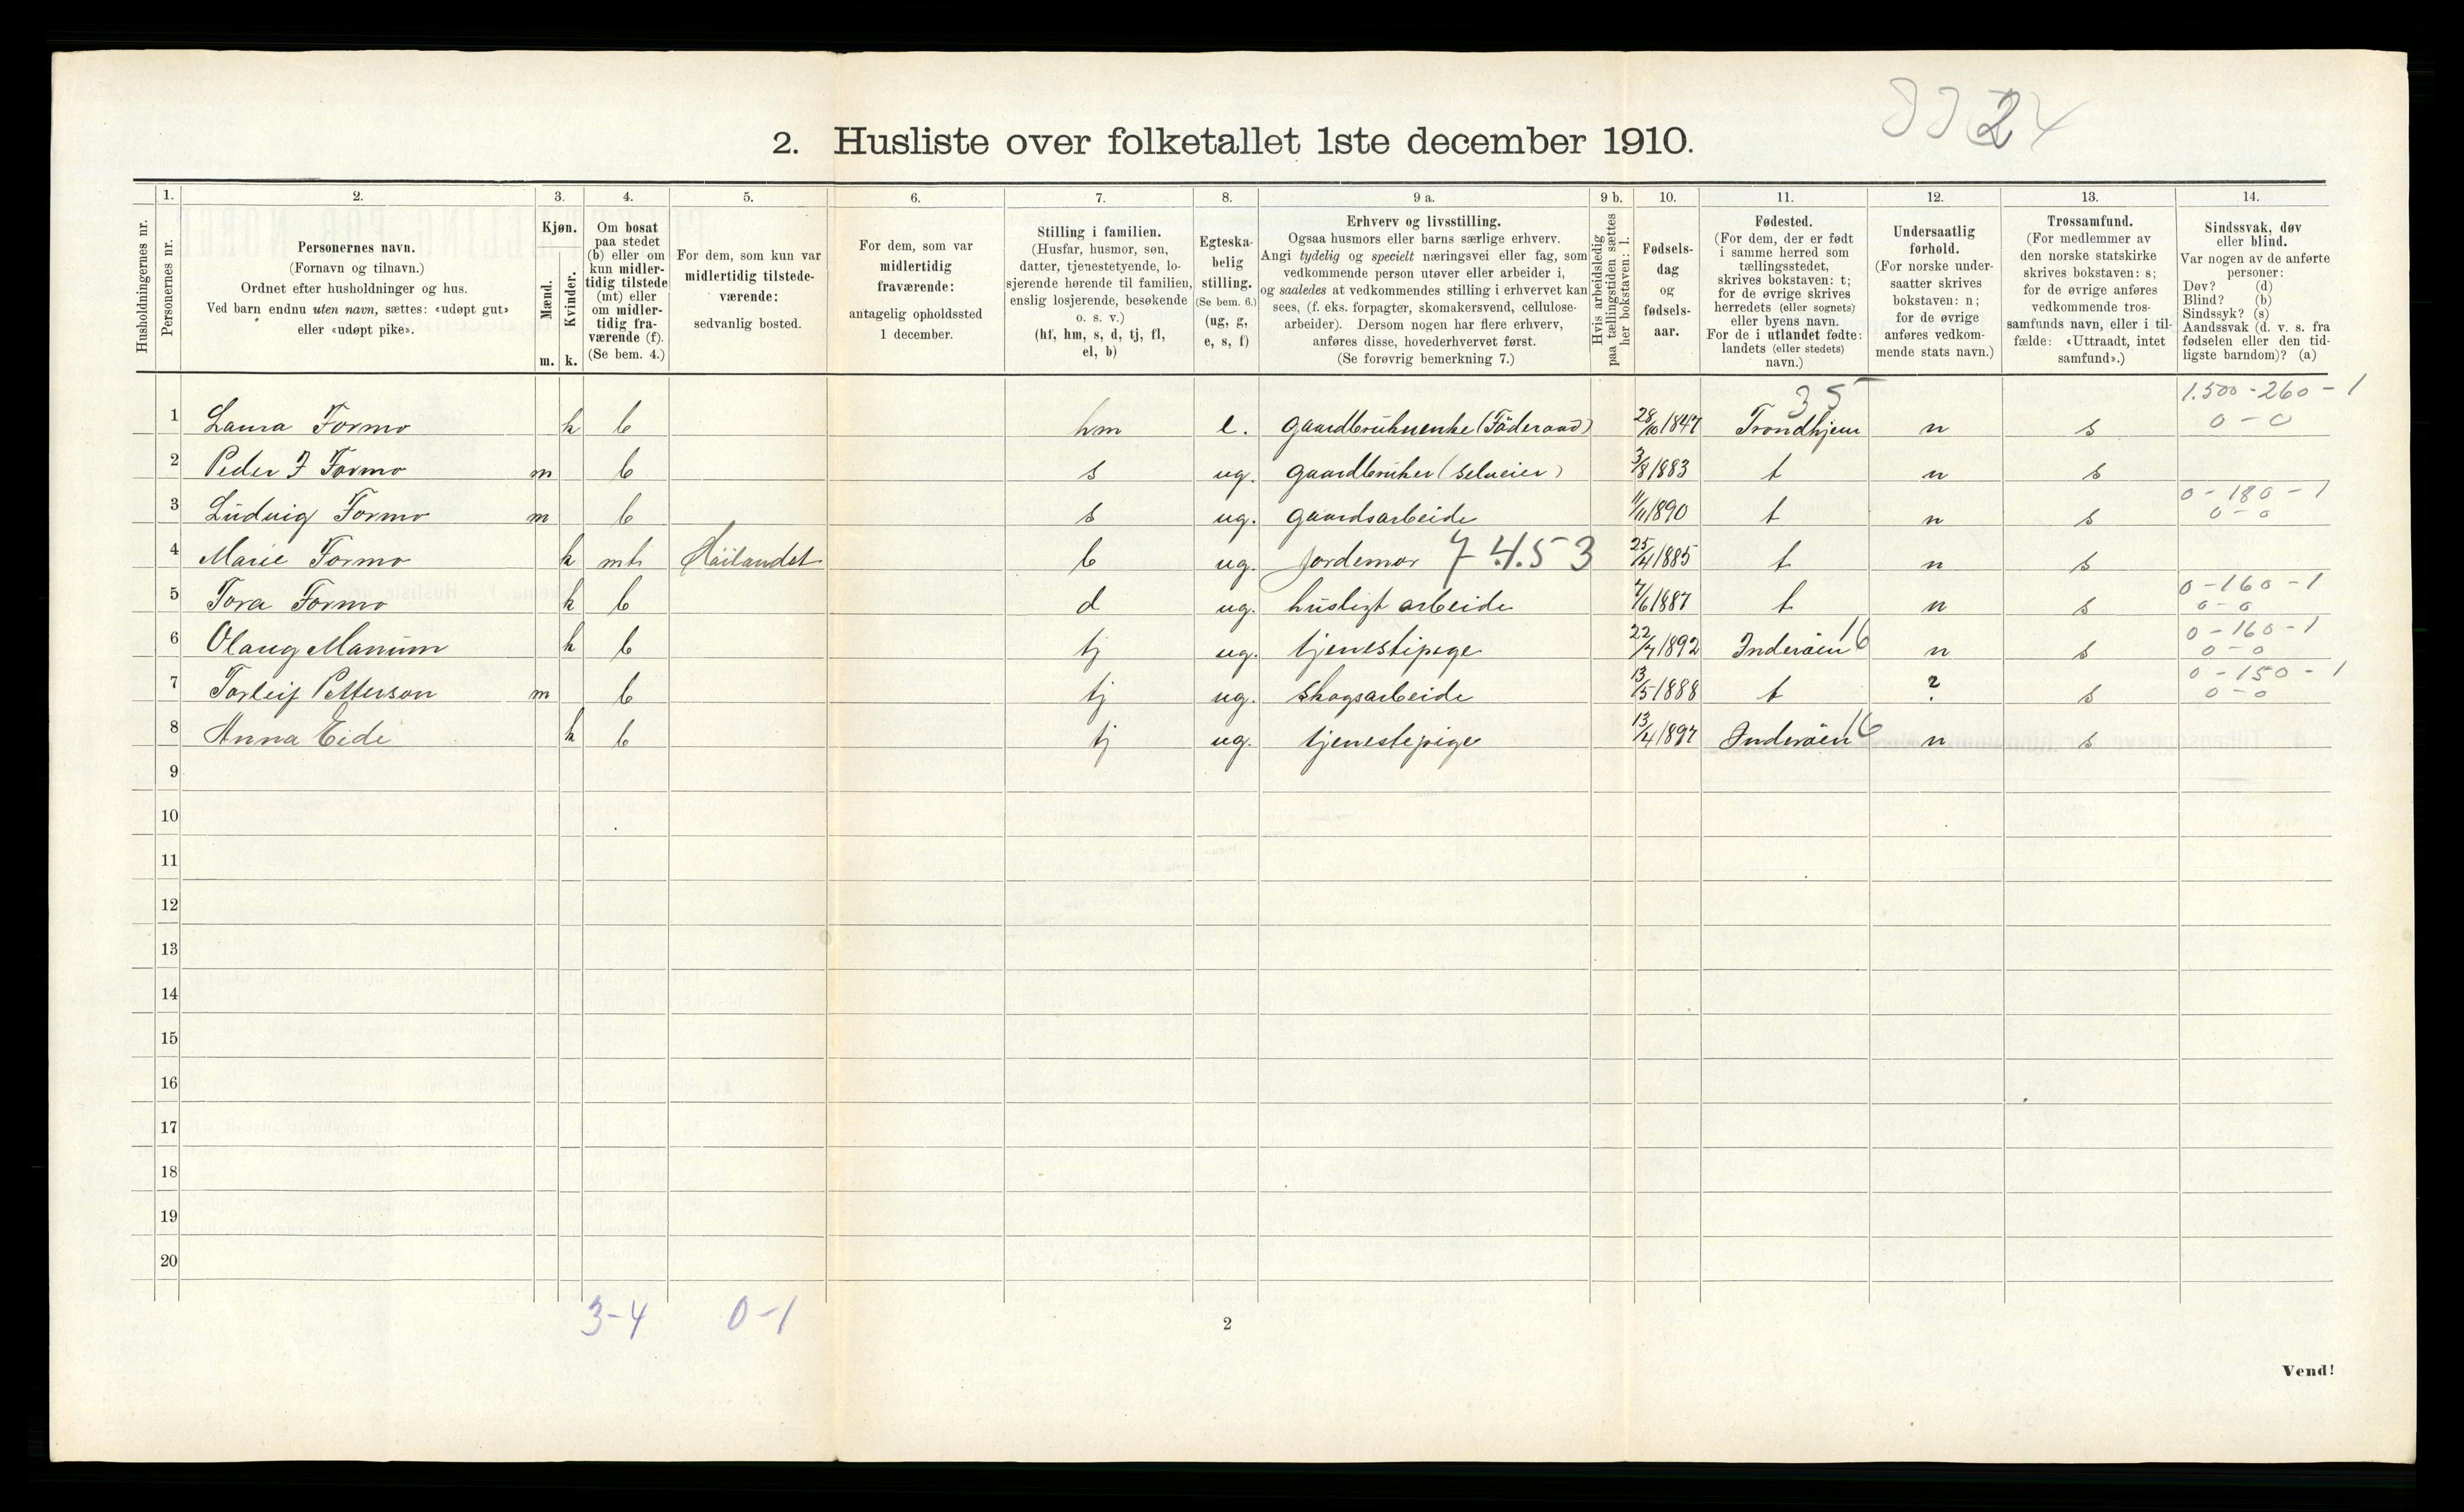 3324
2. Husliste over folketallet 1ste december 1910.
Husholdningernes nr.
1.
Personernes nr.
2.
Personernes navn.
(Fornavn og tilnavn.)
Ordnet efter husholdninger og hus.
Ved barn endnu uten navn, sættes: «udøpt gut»
eller «udøpt pike».
3.
Kjøn.
Mænd.
m.
Kvinder.
k.
4.
Om bosat
paa stedet
(b) eller om
kun midler-
tidig tilstede
(mt) eller
om midler-
tidig fra-
værende (f).
(Se bem. 4.)
5.
For dem, som kun var
midlertidig tilstede-
værende:
sedvanlig bosted.
6.
For dem, som var
midlertidig
fraværende:
antagelig opholdssted
1 december.
7.
Stilling i familien.
(Husfar, husmor, søn,
datter, tjenestetyende, lo-
sjerende hørende til familien,
enslig losjerende, besøkende
o. s. v.)
(hf, hm, s, d, tj, fl,
el, b)
8.
Egteska-
belig
stilling.
(Se bem. 6.)
(ug, g,
e, s, f)
9 a.
Erhverv og livsstilling.
Ogsaa husmors eller barns særlige erhverv.
Angi tydelig og specielt næringsvei eller fag, som
vedkommende person utøver eller arbeider i,
og saaledes at vedkommendes stilling i erhvervet kan
sees, (f. eks. forpagter, skomakersvend, cellulose-
arbeider). Dersom nogen har flere erhverv,
anføres disse, hovederhvervet først.
(Se forøvrig bemerkning 7.)
9 b.
Hvis arbeidsledig
paa tællingstiden sættes
her bokstaven: l.
10.
Fødsels-
dag
og
fødsels-
aar.
11.
Fødested.
(For dem, der er født
i samme herred som
tællingsstedet,
skrives bokstaven: t;
for de øvrige skrives
herredets (eller sognets)
eller byens navn.
For de i utlandet fødte:
landets (eller stedets)
navn.)
12.
Undersaatlig
forhold.
(For norske under-
saatter skrives
bokstaven: n;
for de øvrige
anføres vedkom-
mende stats navn.)
13.
Trossamfund.
(For medlemmer av
den norske statskirke
skrives bokstaven: s;
for de øvrige anføres
vedkommende tros-
samfunds navn, eller i til-
fælde: «Uttraadt, intet
samfund».)
14.
Sindssvak, døv
eller blind.
Var nogen av de anførte
personer:
Døv? (d)
Blind? (b)
Sindssyk? (s)
Aandssvak (d. v. s. fra
fødselen eller den tid-
ligste barndom)? (a)
35 1.500-260-1
1 Laura Formo k b hm e. Gaardbrukerenke (Föderaad) 28/10 1847 Trondhjem n s 0-0
2 Peder J Formo m b s ug. gaardbruker (selveier) 3/8 1883 t n s
0-180-1
3 Ludvig Formo m b s ug. gaardsarbeide 11/11 1890 t n s 0-0
4 Marie Formo k mt. Höilandet b ug. Jordemor 7.4.53 25/4 1885 t n s
0-160-1
5 Tora Formo k b d ug. husligt arbeide 7/6 1887 t n s 0-0
0-160-1
6 Olaug Manum k b tj ug. tjenestepige 22/7 1892 Inderöen 16 n s 0-0
0-150-1
7 Torleif Petterson m b tj ug. skogsarbeide 13/5 1888 t ? s 0-0
8 Anna Eide k b tj ug. tjenestepige 13/4 1897 Inderöen 16 n s
9
10
11
12
13
14
15
16
17
18
19
20
3-4 0-1
2
Vend!